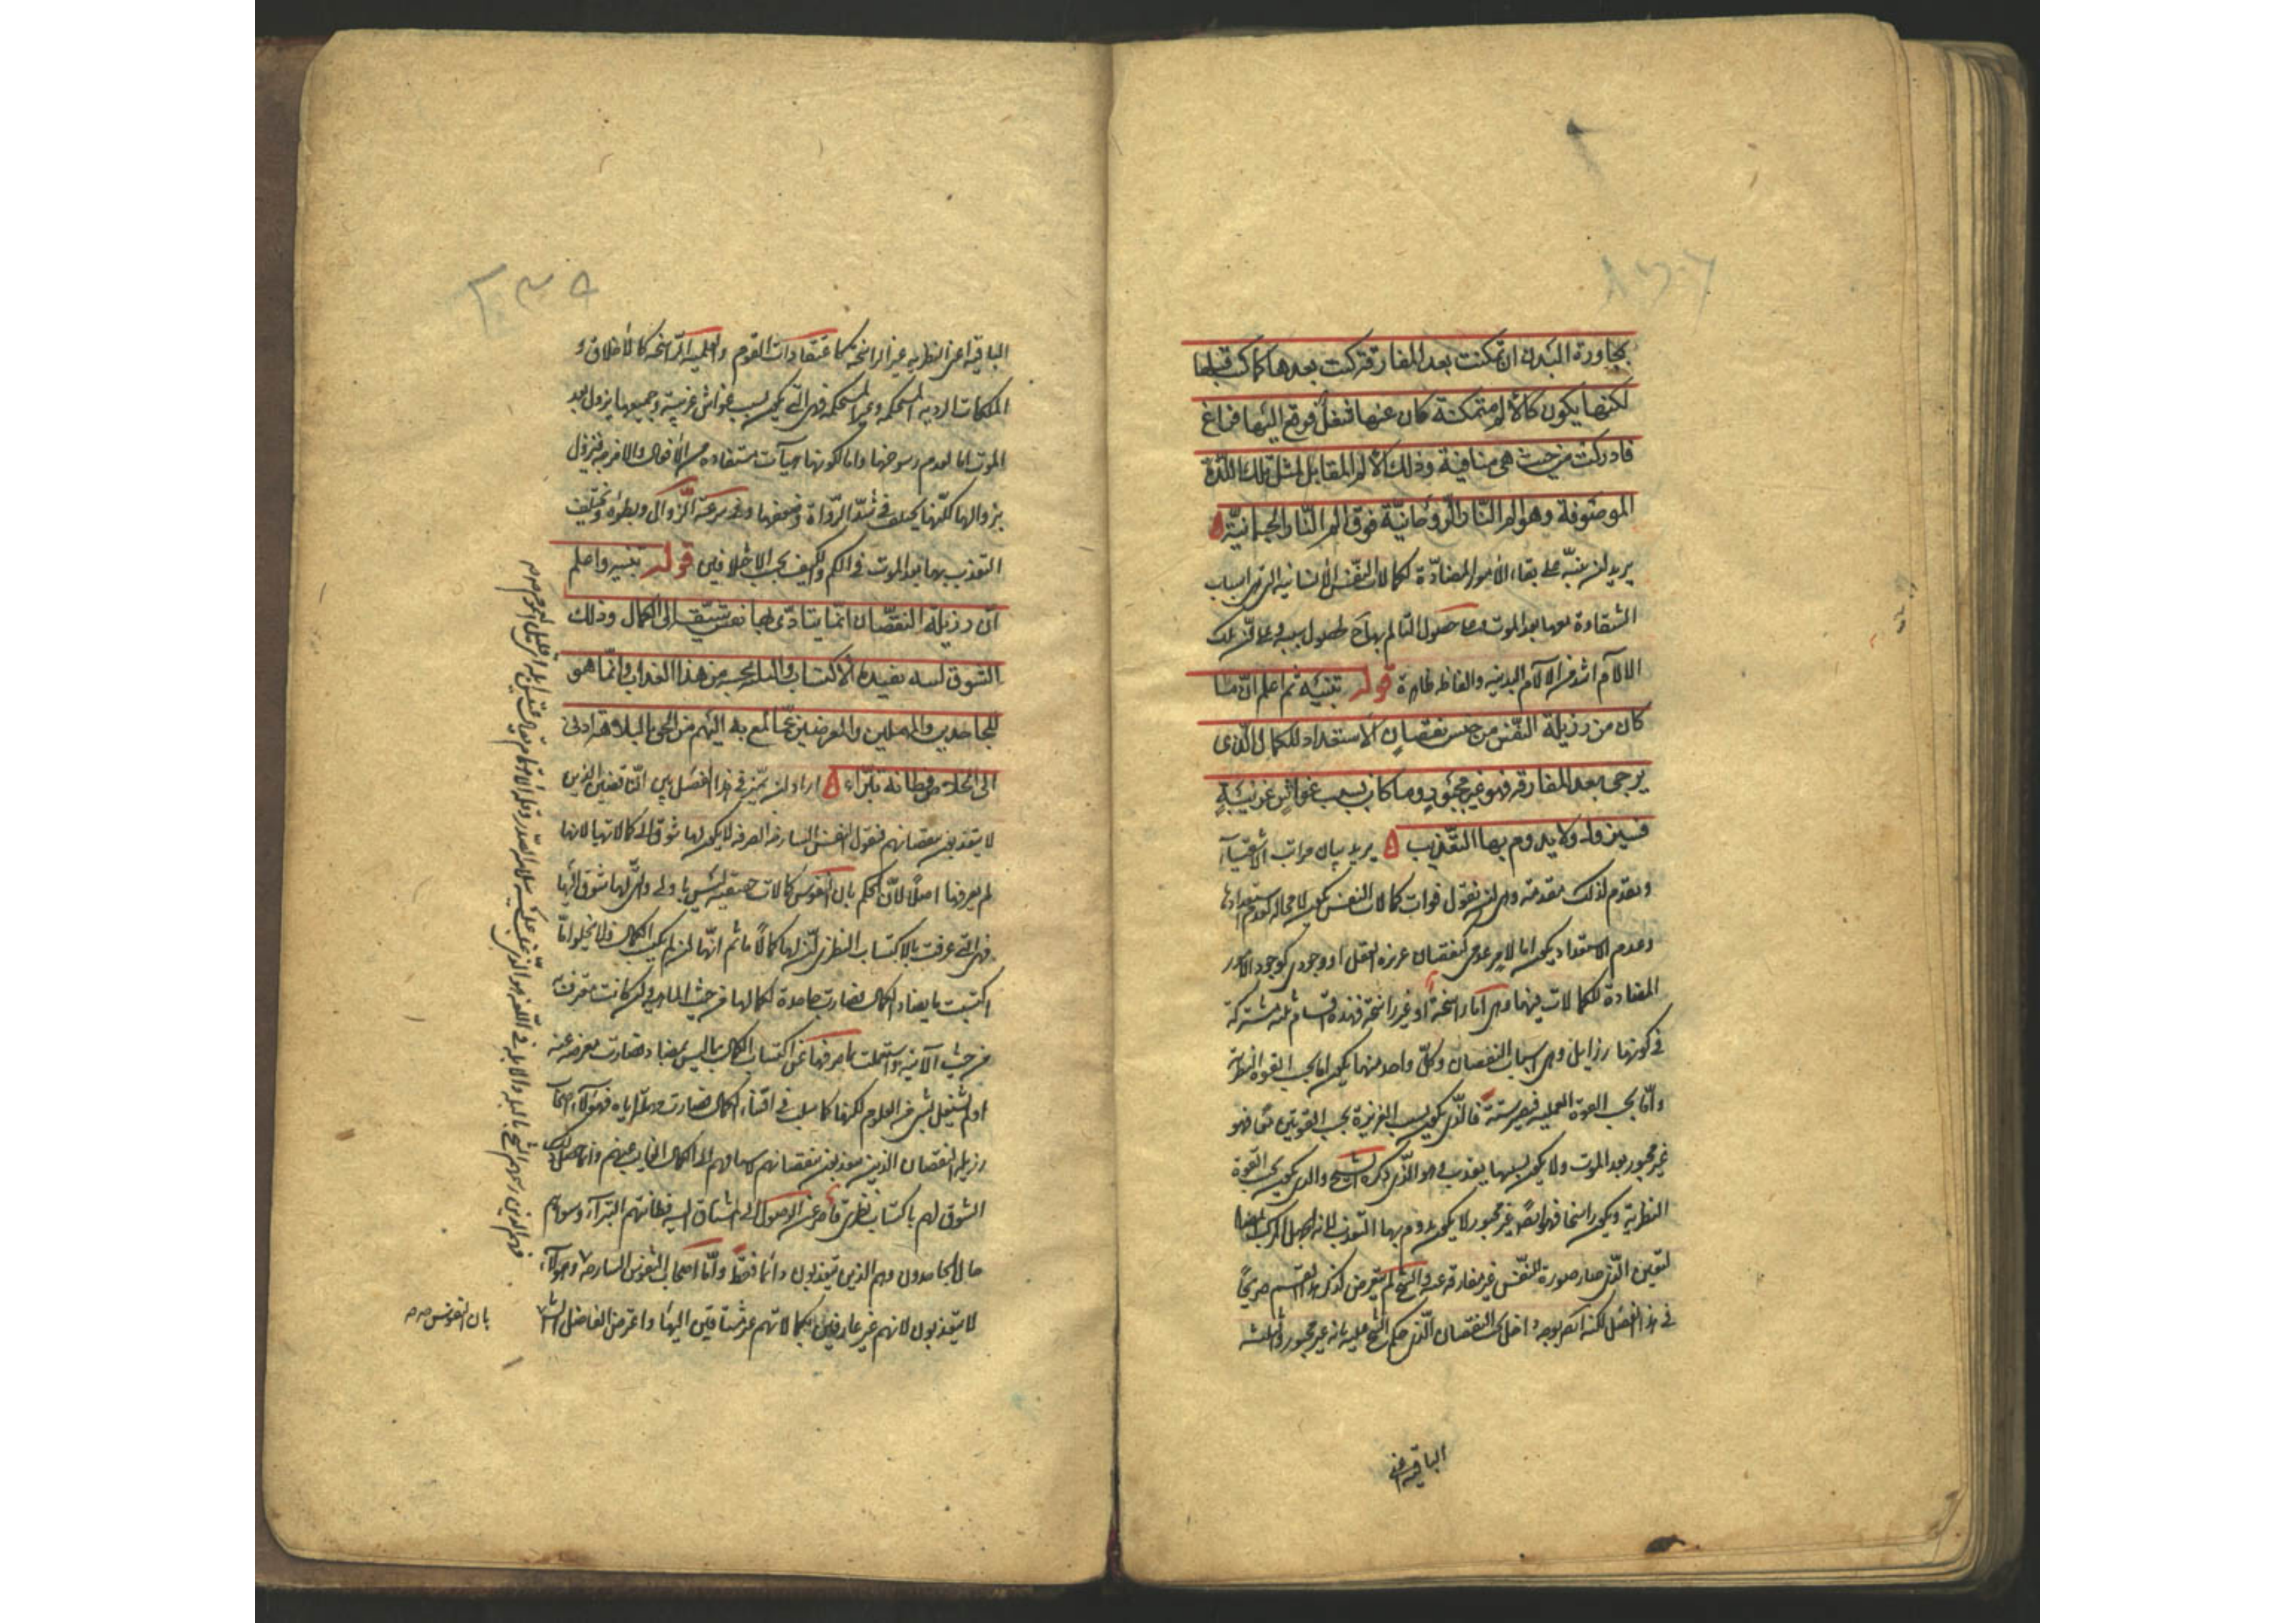 بمجاورة البدن ان تمكنت بعد المفارقة كنت بعدها كما كنت قبلها
لكنها يكون كآلام متمكنة كان عنها شغل فوقع اليها فراغ
فادركت من حيث هى منافية وذلك الألم المقابل لمثل تلك اللذة
الموصوفة وهو الم النار الروحانية فوق الم النار الجسمانية ه
يريد ان ينبه على بقاء الأمور المضادة لكمالات النفس الانسانية التى هى اسباب
الشقاوة معها بعد الموت وعلى حصول التألم بها ح لحصول سببه وعلى ان تلك
الالآم اشد من الآلام البدنية والفاظه ظاهرة قوله تنبيه ثم اعلم ان ما
كان من رذيلة النفس من جنس نقصان الاستعداد للكمال الذى
يرجى بعد المفارقة فهو غير مجبور وما كان بسبب غواش غريبة
فيزول ولا يدوم بها التعذيب ه يريد بيان مراتب الاشقيآء
ونقدم لذلك مقدمة وهى ان نقول فوات كمالات النفس يكون لا محالة لعدم استعدادها
وعدم الاستعداد يكون اما لامر عدمى كنقصان غريزة العقل او وجودى كوجود الامور
المضادة للكمالات فيها وهى اما راسخة او غير راسخة فهذه اقسام ثلثة مشتركة
فى كونها رذايل وهى اسباب النقصان وكل واحد منها يكون اما بحسب القوة النظرية
واما بحسب القوة العملية فيصير ستة فالذى يكون بسبب الغريزة بحسب القوتين معا فهو
غير مجبور بعد الموت ولا يكون بسببها تعذب وهو الذى ذكره الشيخ والذى يكون بحسب القوة
النظرية ويكون راسخا فهو ايضا غير مجبور لا يكون يدوم بها التعذب لانه الجهل المركب المضاد
لليقين الذى صار صورة للنفس غير مفارقة عنه والشيخ لم يتعرض لذكر هذا القسم صريحًا
فى هذا الفصل لكنه اكثر بوجه داخل تحت النقصان الذى حكم الشيخ عليه بانه غير مجبور والثلثة
الباقية اعنى
الباقية اعنى النظرية غير الراسخة كاعتقادات القوم والعملية الراسخة كالأخلاق و
الملكات الردية المستحكمة وغير المستحكمة فهى التى يكون بسبب غواش غريبة وجميعها يزول بعد
الموت اما لعدم رسوخها واما لكونها هيآت مستفادة من الأفعال والامزجة فيزول
بزوالها لكنها يختلف فى شدة الرداءة وضعفها وفى سرعة الزوال وبطؤه ويختلف
التعذب بها بعد الموت فى الكم والكيف بحسب الاختلافين قوله تنبيه واعلم
أن رذيلة النقصان انما يتأذى بها نفس شيقة الى الكمال وذلك
الشوق لسه يفيده الاكتساب والبله بجنبة من هذا العذاب وانما هو
للجاحدين والمهملين والمعرضين عما المع به اليهم من الحق فالبلاهة ادنى
الى الخلاص من فطانة بتراء ه اراد ان يميز فى هذا الفصل بين الناقصين الذين
لا يتعذبون بنقصانهم فنقول النفس الساذجة الصرفة لا يكون لها شوق الى كمالاتها لانها
لم يعرفها اصلًا لأن الحكم بان للنفوس كمالات حقيقية ليس باولى والتى لها شوق اليها
فهى التى عرفت بالاكتساب النظرى ان لها كمالًا ما ثم انها ان لم يكتسب الكمال فلا يخلو امّا
اكتسبت ما يضاد الكمال فصارت جاحدة لكمالها من حيث الماهية وان كانت معترفة
من حيث الآنية او اشتغلت بما صرفها عن اكتساب الكمال مما ليس بمضاد فصارت معرضة عنه
او لم يشتغل بشىء من العلوم لكنها تكاسلت فى اقتناء الكمال فصارت مهملة اياه فهؤلاء اصحاب
رذيلة النقصان الذين يتعذبون بنقصانهم لاشتياقهم الى الكمال الفايت عنهم وانما حصل ذلك
الشوق لهم باكتساب نظرى قاصر عن الوصول الى المشتاق اليه فطانتهم البتراء وسوأهم
حالا الجاحدون وهم الذين يتعذبون دائما فقط وأما اصحاب النفوس الساذجة وهؤلاء
لا يتعذبون لانهم غير عارفين بكمالاتهم غير مشتاقين اليها واعترض الفاضل الشارح
بان النفوس